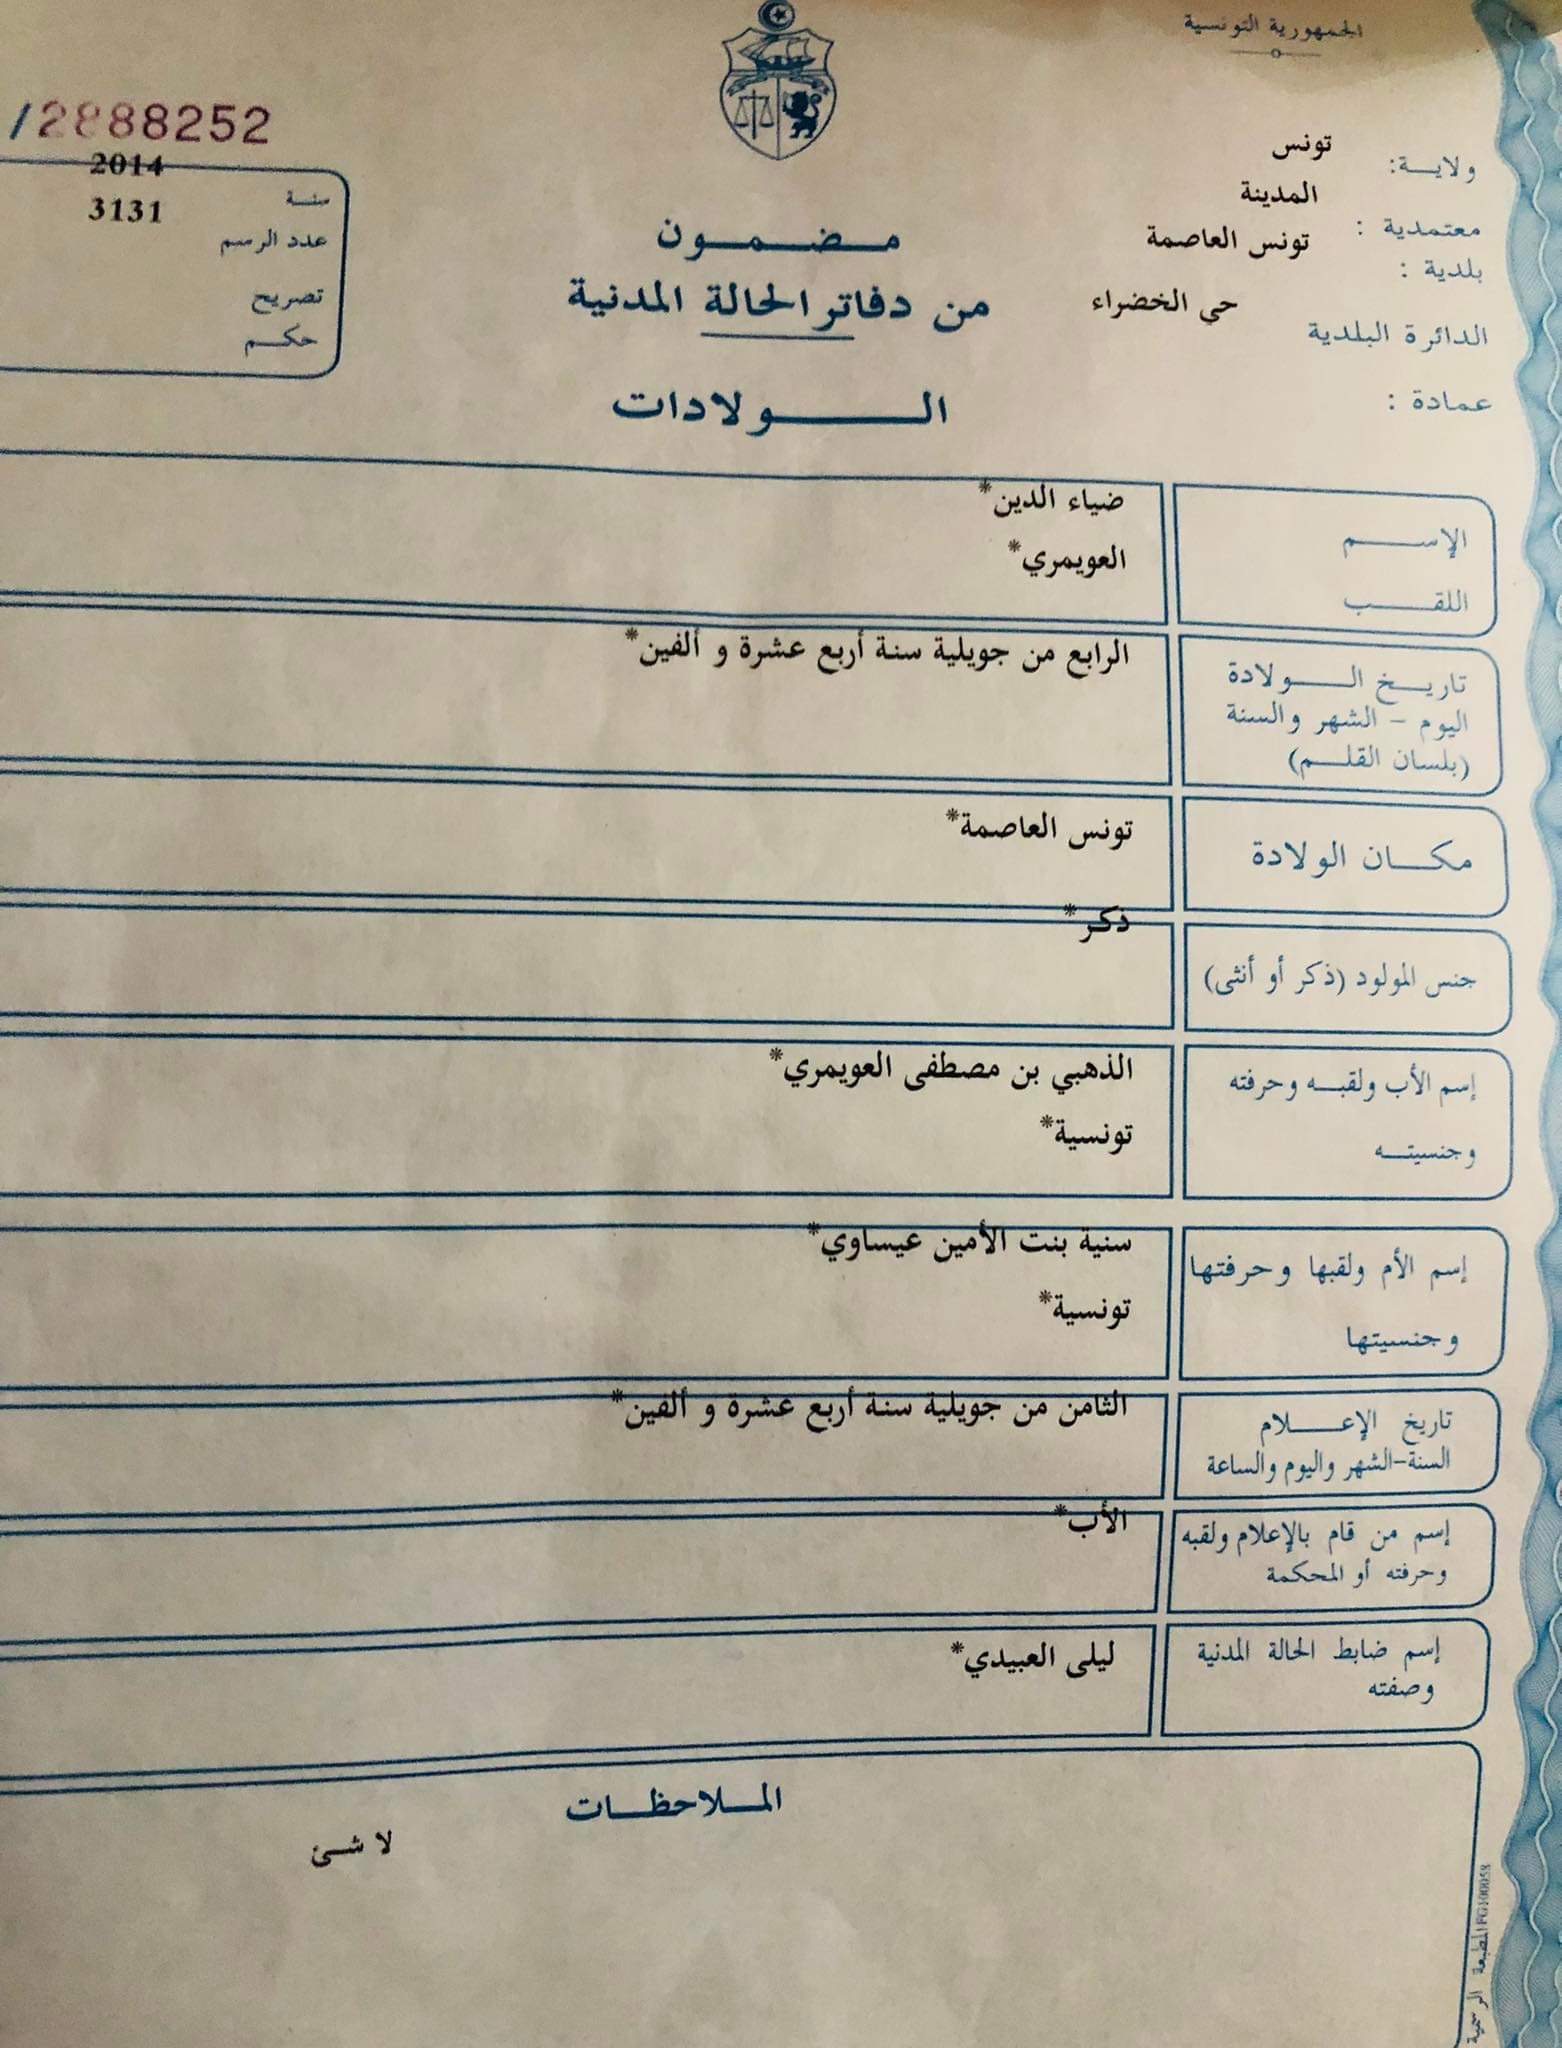 الجمهورية التونسية
ولاية: تونس
معتمدية : المدينة
بلدية : تونس العاصمة
الدائرة البلدية حي الخضراء
عمادة :
/2888252
سنة 2014
عدد الرسم 3131
تصريح
حكم
مضمون
من دفاتر الحالة المدنية
الولادات
الإسم ضياء الدين*
اللقب العويمري*
تاريخ الولادة الرابع من جويلية سنة أربع عشرة و ألفين*
اليوم - الشهر والسنة
(بلسان القلم)
مكان الولادة تونس العاصمة*
جنس المولود (ذكر أو أنثى) ذكر*
إسم الأب ولقبه وحرفته الذهبي بن مصطفى العويمري*
وجنسيته تونسية*
إسم الأم ولقبها وحرفتها سنية بنت الأمين عيساوي*
وجنسيتها تونسية*
تاريخ الإعلام الثامن من جويلية سنة أربع عشرة و ألفين*
السنة-الشهر واليوم والساعة
إسم من قام بالإعلام ولقبه الأب*
وحرفته أو المحكمة
إسم ضابط الحالة المدنية ليلى العبيدي*
وصفته
الملاحظات
لا شئ
المطبعة الرسمية FG100058